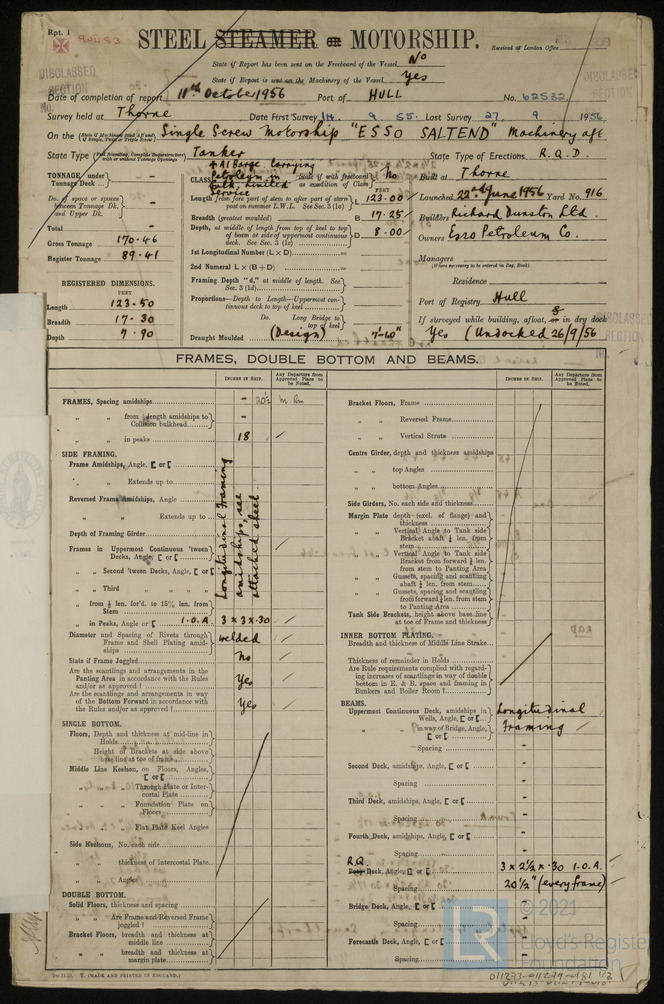 Rpt. 1
90483
STEEL STEAMER OR MOTORSHIP.
Received at London Office
State if Report has been sent on the Freeboard of the Vessel No
State if Report is sent on the Machinery of the Vessel Yes
Date of completion of report 11th October 1956 Port of HULL No. 62532
Survey held at Thorne Date First Survey 14. 9. 55. Last Survey 27. 9 1956
On the (State if Machinery fitted Aft and if Single, Twin or Triple Screw) Single Screw Motorship "ESSO SALTEND" Machinery aft
State Type (Full Scantling, Complete Superstructure with or without Tonnage Openings) Tanker State Type of Erections. R.Q.D.
TONNAGE under Tonnage Deck
CLASS +A1 Barge, carrying Petroleum in bulk, limited service State if with freeboard as condition of Class No
Built at Thorne
Launched 22nd June 1956 Yard No. 916
Do. of space or spaces between Tonnage Dk. and Upper Dk.
Length from fore part of stem to after part of stern post on summer L.W.L. See Sec. 3 (1a) L 123.00
FEET
Breadth (greatest moulded) B 17.25
Builders Richard Dunston Ltd.
Total
Depth, at middle of length from top of keel to top of beam at side of uppermost continuous deck. See Sec. 3 (1c) D 8.00
Owners Esso Petroleum Co.
Gross Tonnage 170.46
1st Longitudinal Number (L × D)
Register Tonnage 89.41
2nd Numeral L × (B + D)
Managers
(If here surveying to be entered in Reg. Book)
REGISTERED DIMENSIONS.
FEET
Framing Depth "d," at middle of length. See Sec. 3 (1d)
Residence
Length 123.50
Proportions—Depth to Length—Uppermost continuous deck to top of keel
Port of Registry Hull
Breadth 17.30
Do. Long Bridge to top of keel
If surveyed while building, afloat, or in dry dock
Depth 7.90
Draught Moulded (Design) 7'-10"
Yes (Undocked 26/9/56
FRAMES, DOUBLE BOTTOM AND BEAMS.
INCHES IN SHIP.
Any Departure from Approved Plans to be Noted.
FRAMES, Spacing amidships - 20½
" " from ⅗ length amidships to Collision bulkhead -
" " in peaks 18
SIDE FRAMING.
Frame Amidships, Angle, [ or [
" " Extends up to
Reversed Frame Amidships, Angle
" " Extends up to
Depth of Framing Girder
Longitudinal Framing amidships, see attached sheet
Frames in Uppermost Continuous 'tween Decks, Angle, [ or [
" " Second 'tween Decks, Angle, [ or [
" " Third " "
" " from ⅕ len. for'd. to 15% len. from Stem
" " in Peaks, Angle or [ I.O.A. 3 x 3 x .30
Diameter and Spacing of Rivets through Frame and Shell Plating amidships welded
State if Frame Joggled No
Are the scantlings and arrangements in the Panting Area in accordance with the Rules and/or as approved? Yes
Are the scantlings and arrangements in way of the Bottom Forward in accordance with the Rules and/or as approved? Yes
SINGLE BOTTOM.
Floors, Depth and thickness at mid-line in Holds
" Height of Brackets at side above base line at toe of frame
Middle Line Keelson, on Floors, Angles, [ or [
" " Through Plate or Intercostal Plate
" " Foundation Plate on Floors
" " Flat Plate Keel Angles
Side Keelsons, No. each side
" " thickness of Intercostal Plate
" " Angles
DOUBLE BOTTOM.
Solid Floors, thickness and spacing
" " Are Frame and Reversed Frame joggled?
Bracket Floors, breadth and thickness at middle line
" " breadth and thickness at margin plate
INCHES IN SHIP.
Any Departure from Approved Plans to be Noted.
Bracket Floors, Frame
" " Reversed Frame
" " Vertical Struts
Centre Girder, depth and thickness amidships
" " top Angles
" " bottom Angles
Side Girders, No. each side and thickness
Margin Plate depth (excl. of flange) and thickness
" " Vertical Angle to Tank side Bracket abaft ¼ len. from stem
" " Vertical Angle to Tank side Bracket from forward ¼ len. from stem to Panting Area
" " Gussets, spacing and scantling abaft ¼ len. from stem
" " Gussets, spacing and scantling from forward ¼ len. from stem to Panting Area
Tank Side Brackets, height above base line at toe of Frame and thickness
INNER BOTTOM PLATING.
Breadth and thickness of Middle Line Strake
Thickness of remainder in Holds
Are Rule requirements complied with regarding increases of scantlings in way of double bottom in E. & B. space and framing in Bunkers and Boiler Room?
BEAMS.
Uppermost Continuous Deck, amidships in Wells, Angle, [ or [ Longitudinal
" " in way of Bridge, Angle, [ or [ Framing
" " Spacing -
Second Deck, amidships, Angle, [ or [ -
Spacing -
Third Deck, amidships, Angle, [ or [ -
Spacing -
Fourth Deck, amidships, Angle, [ or [ -
Spacing -
R.Q. Deck, Angle, [ or [ 3 x 2½ x .30 I.O.A.
Spacing 20½" (every frame)
Bridge Deck, Angle, [ or [ -
Spacing -
Forecastle Deck, Angle, [ or [ -
Spacing -
(MADE AND PRINTED IN ENGLAND.)
LR
© 2021
Lloyd's Register
Foundation
011273-011279-0181 1/2